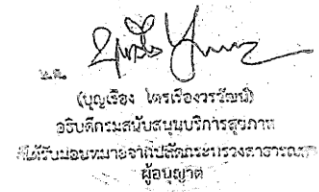 น.ต.
(บุญเรือง ไตรเรืองวรวัฒน์)
อธิบดีกรมสนับสนุนบริการสุขภาพ
ได้รับมอบหมายจากปลัดกระทรวงสาธารณสุข
ผู้อนุญาต